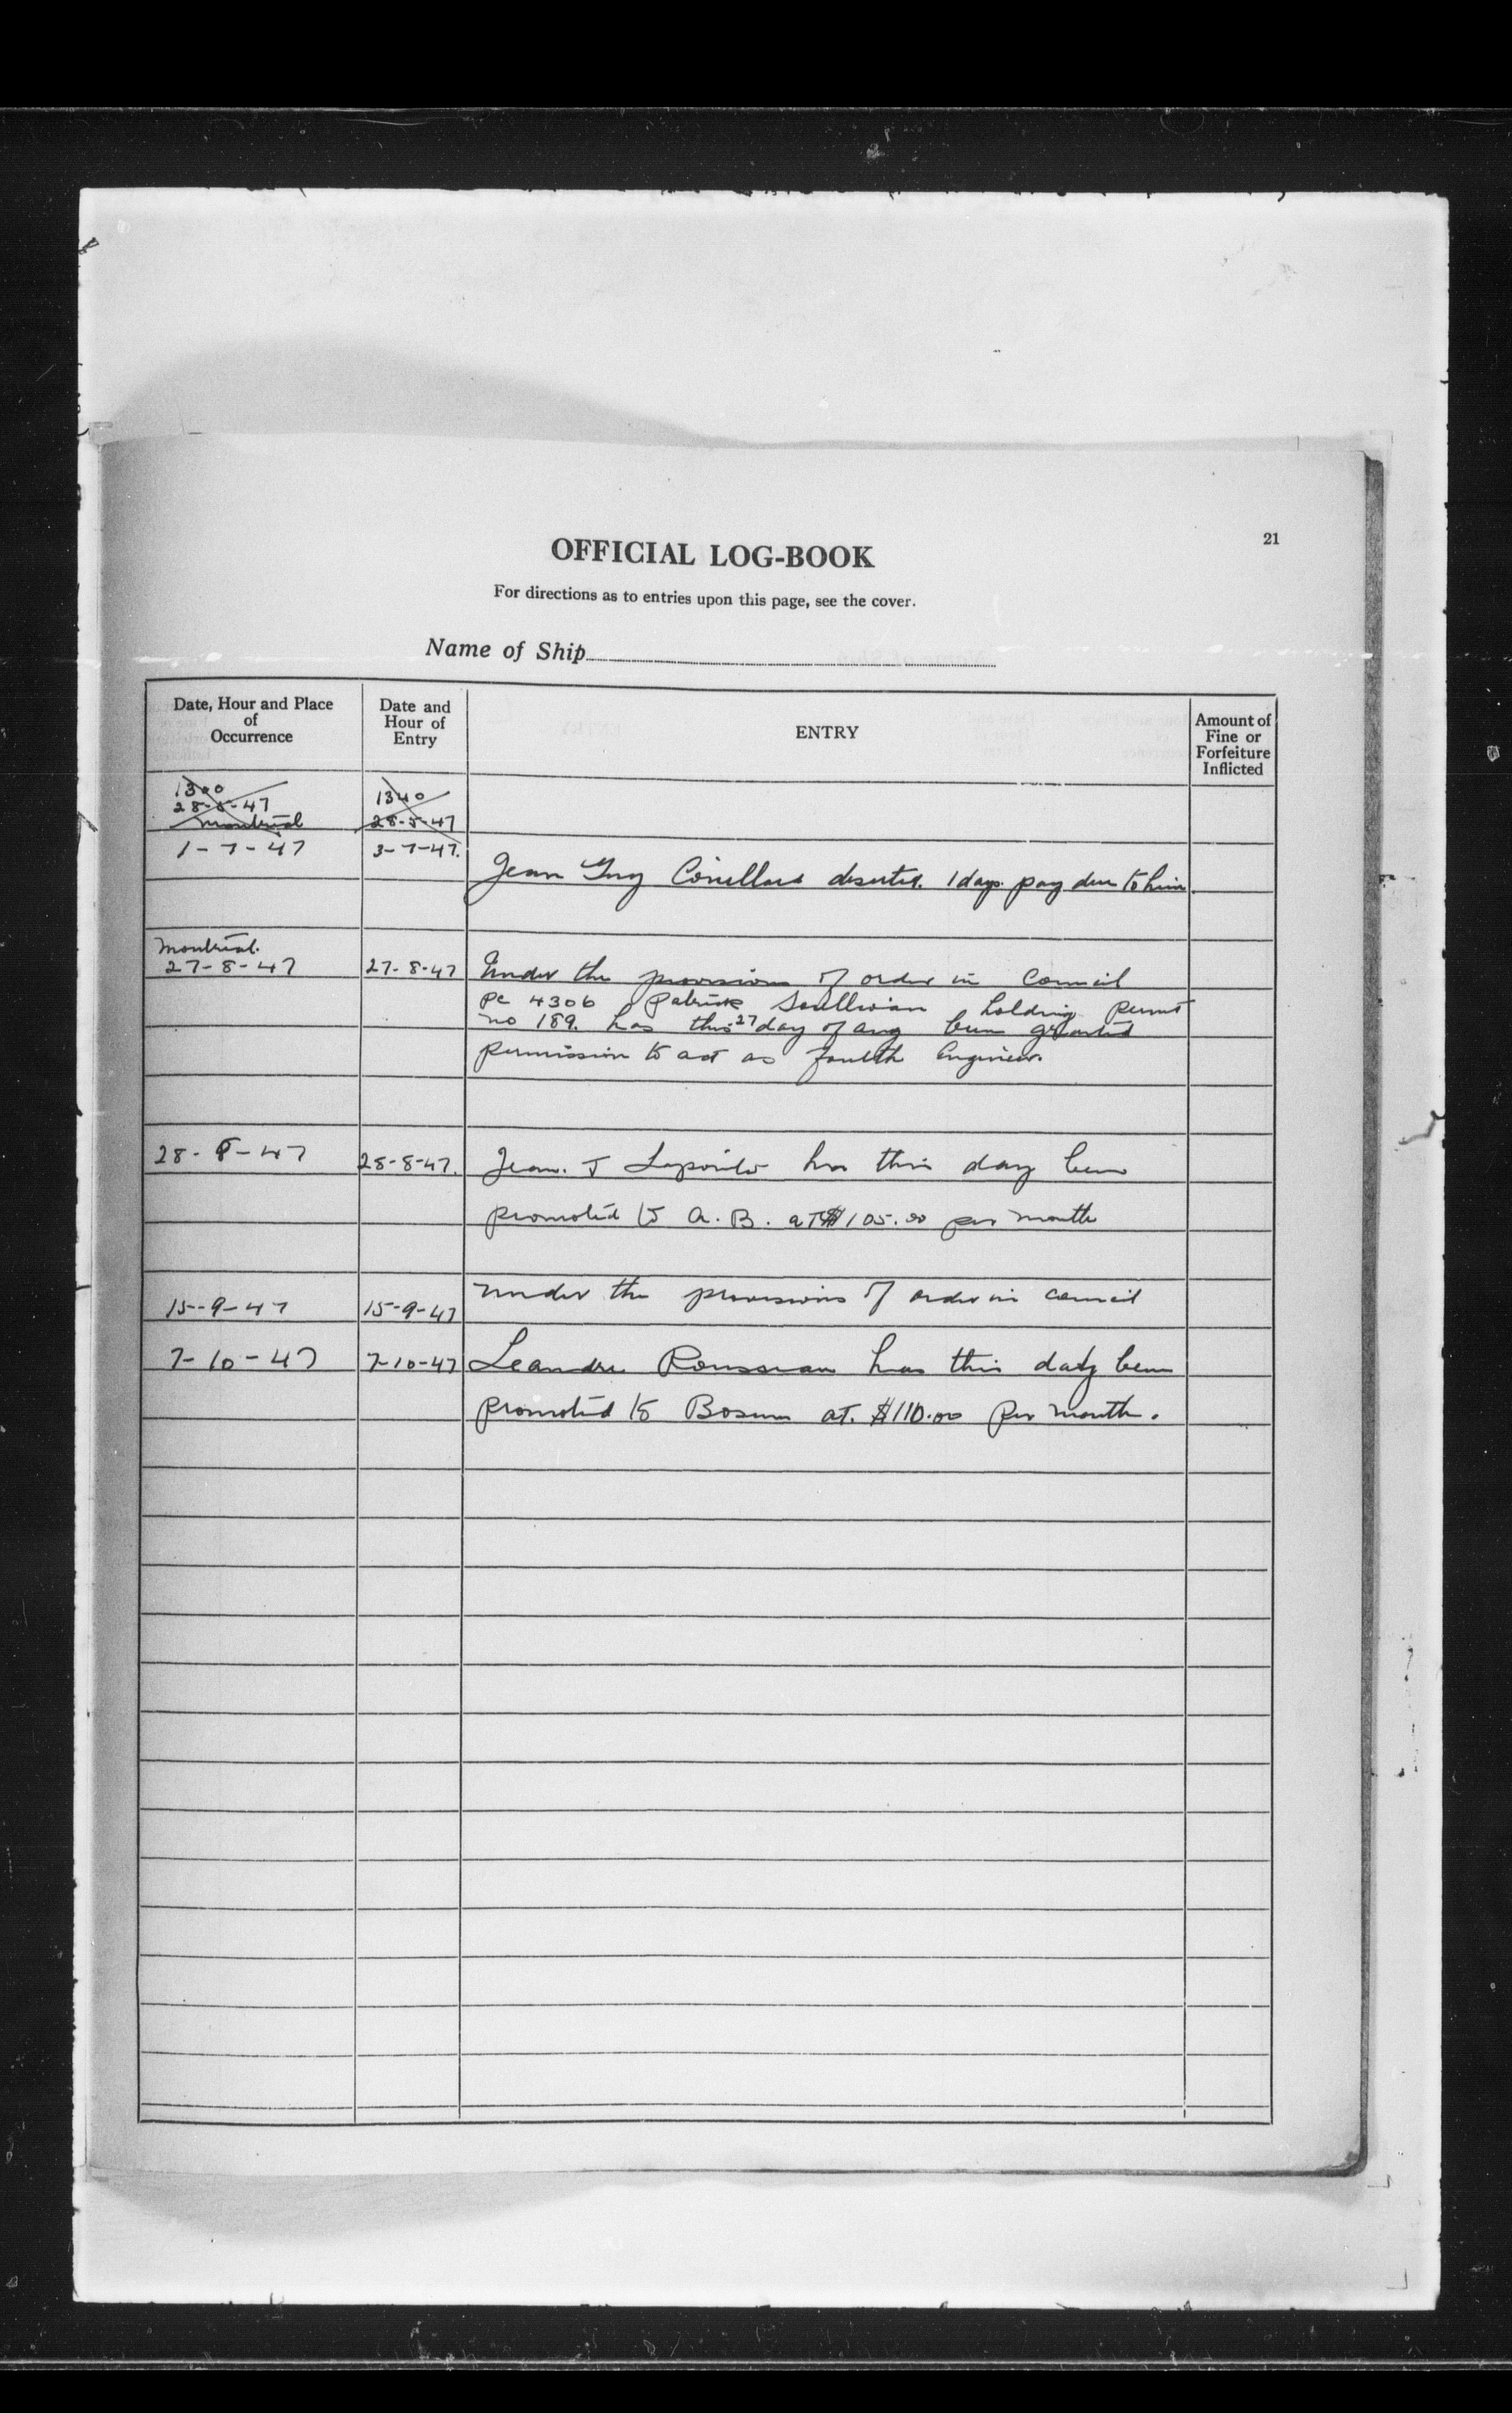 21
OFFICIAL LOG-BOOK
For directions as to entries upon this page, see the cover.
Name of Ship
Date, Hour and Place of Occurrence
Date and Hour of Entry
ENTRY
Amount of Fine or Forfeiture Inflicted
1300 1340
28-5-47
Montreal 28-5-47
1-7-47 3-7-47.
Jean Guy deserted. 1 days pay due to him
Montreal.
27-8-47 27-8-47 Under the provisions of order in Council
PC 4306 Patrick Soullivan holding Permit
no 189. has this 27 day of aug been granted
permission to act as fourth Engineer.
28-8-47 28-8-47. Jean. J has this day been
promoted to A.B. at $105.00 per month
under the provisions of order in council
15-9-47 15-9-47
7-10-47 7-10-47 Leandre Rousseau has this day been
promoted to Bosun at. $110.00 per month.